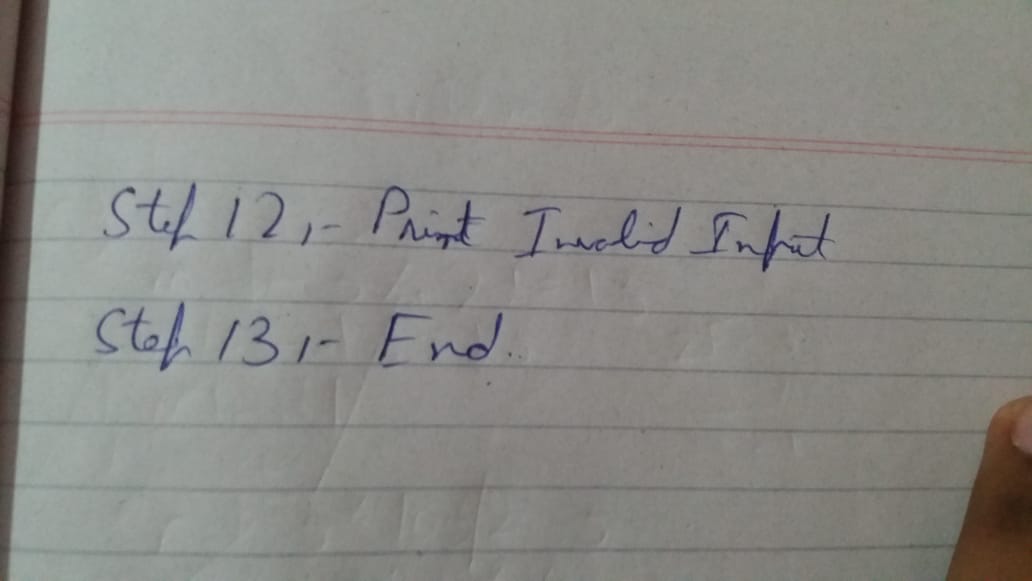 Step 12,- Print Invalid Input
Step 13,- End.